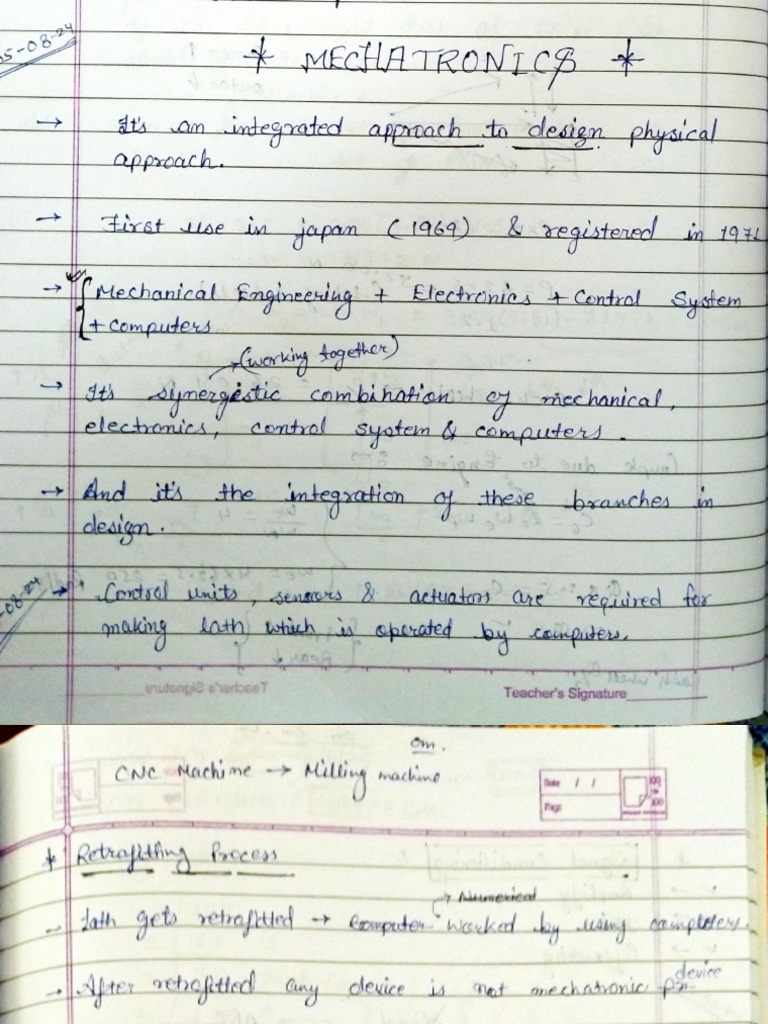 05-08-24
* MECHATRONICS *
→ It's an integrated approach to design physical
approach.
→ First use in japan (1969) & registered in 1971
→ { Mechanical Engineering + Electronics + Control System
+ computers
(working together)
→ It's synergistic combination of mechanical,
electronics, control system & computers.
→ And it's the integration of these branches in
design.
-08-24
→ Control units, sensors & actuators are required for
making lath which is operated by computers.
Teacher's Signature
om.
CNC Machine → Milling machine
Date / /
Page
* Retrofitting Process
Numerical
- Lath gets retrofitted → Computer worked by using computers.
device
→ After retrofitted any device is not mechatronic